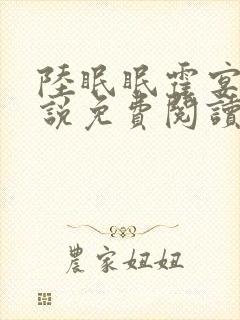 陸眠眠霍宴
說免費閱讀
農家妞妞